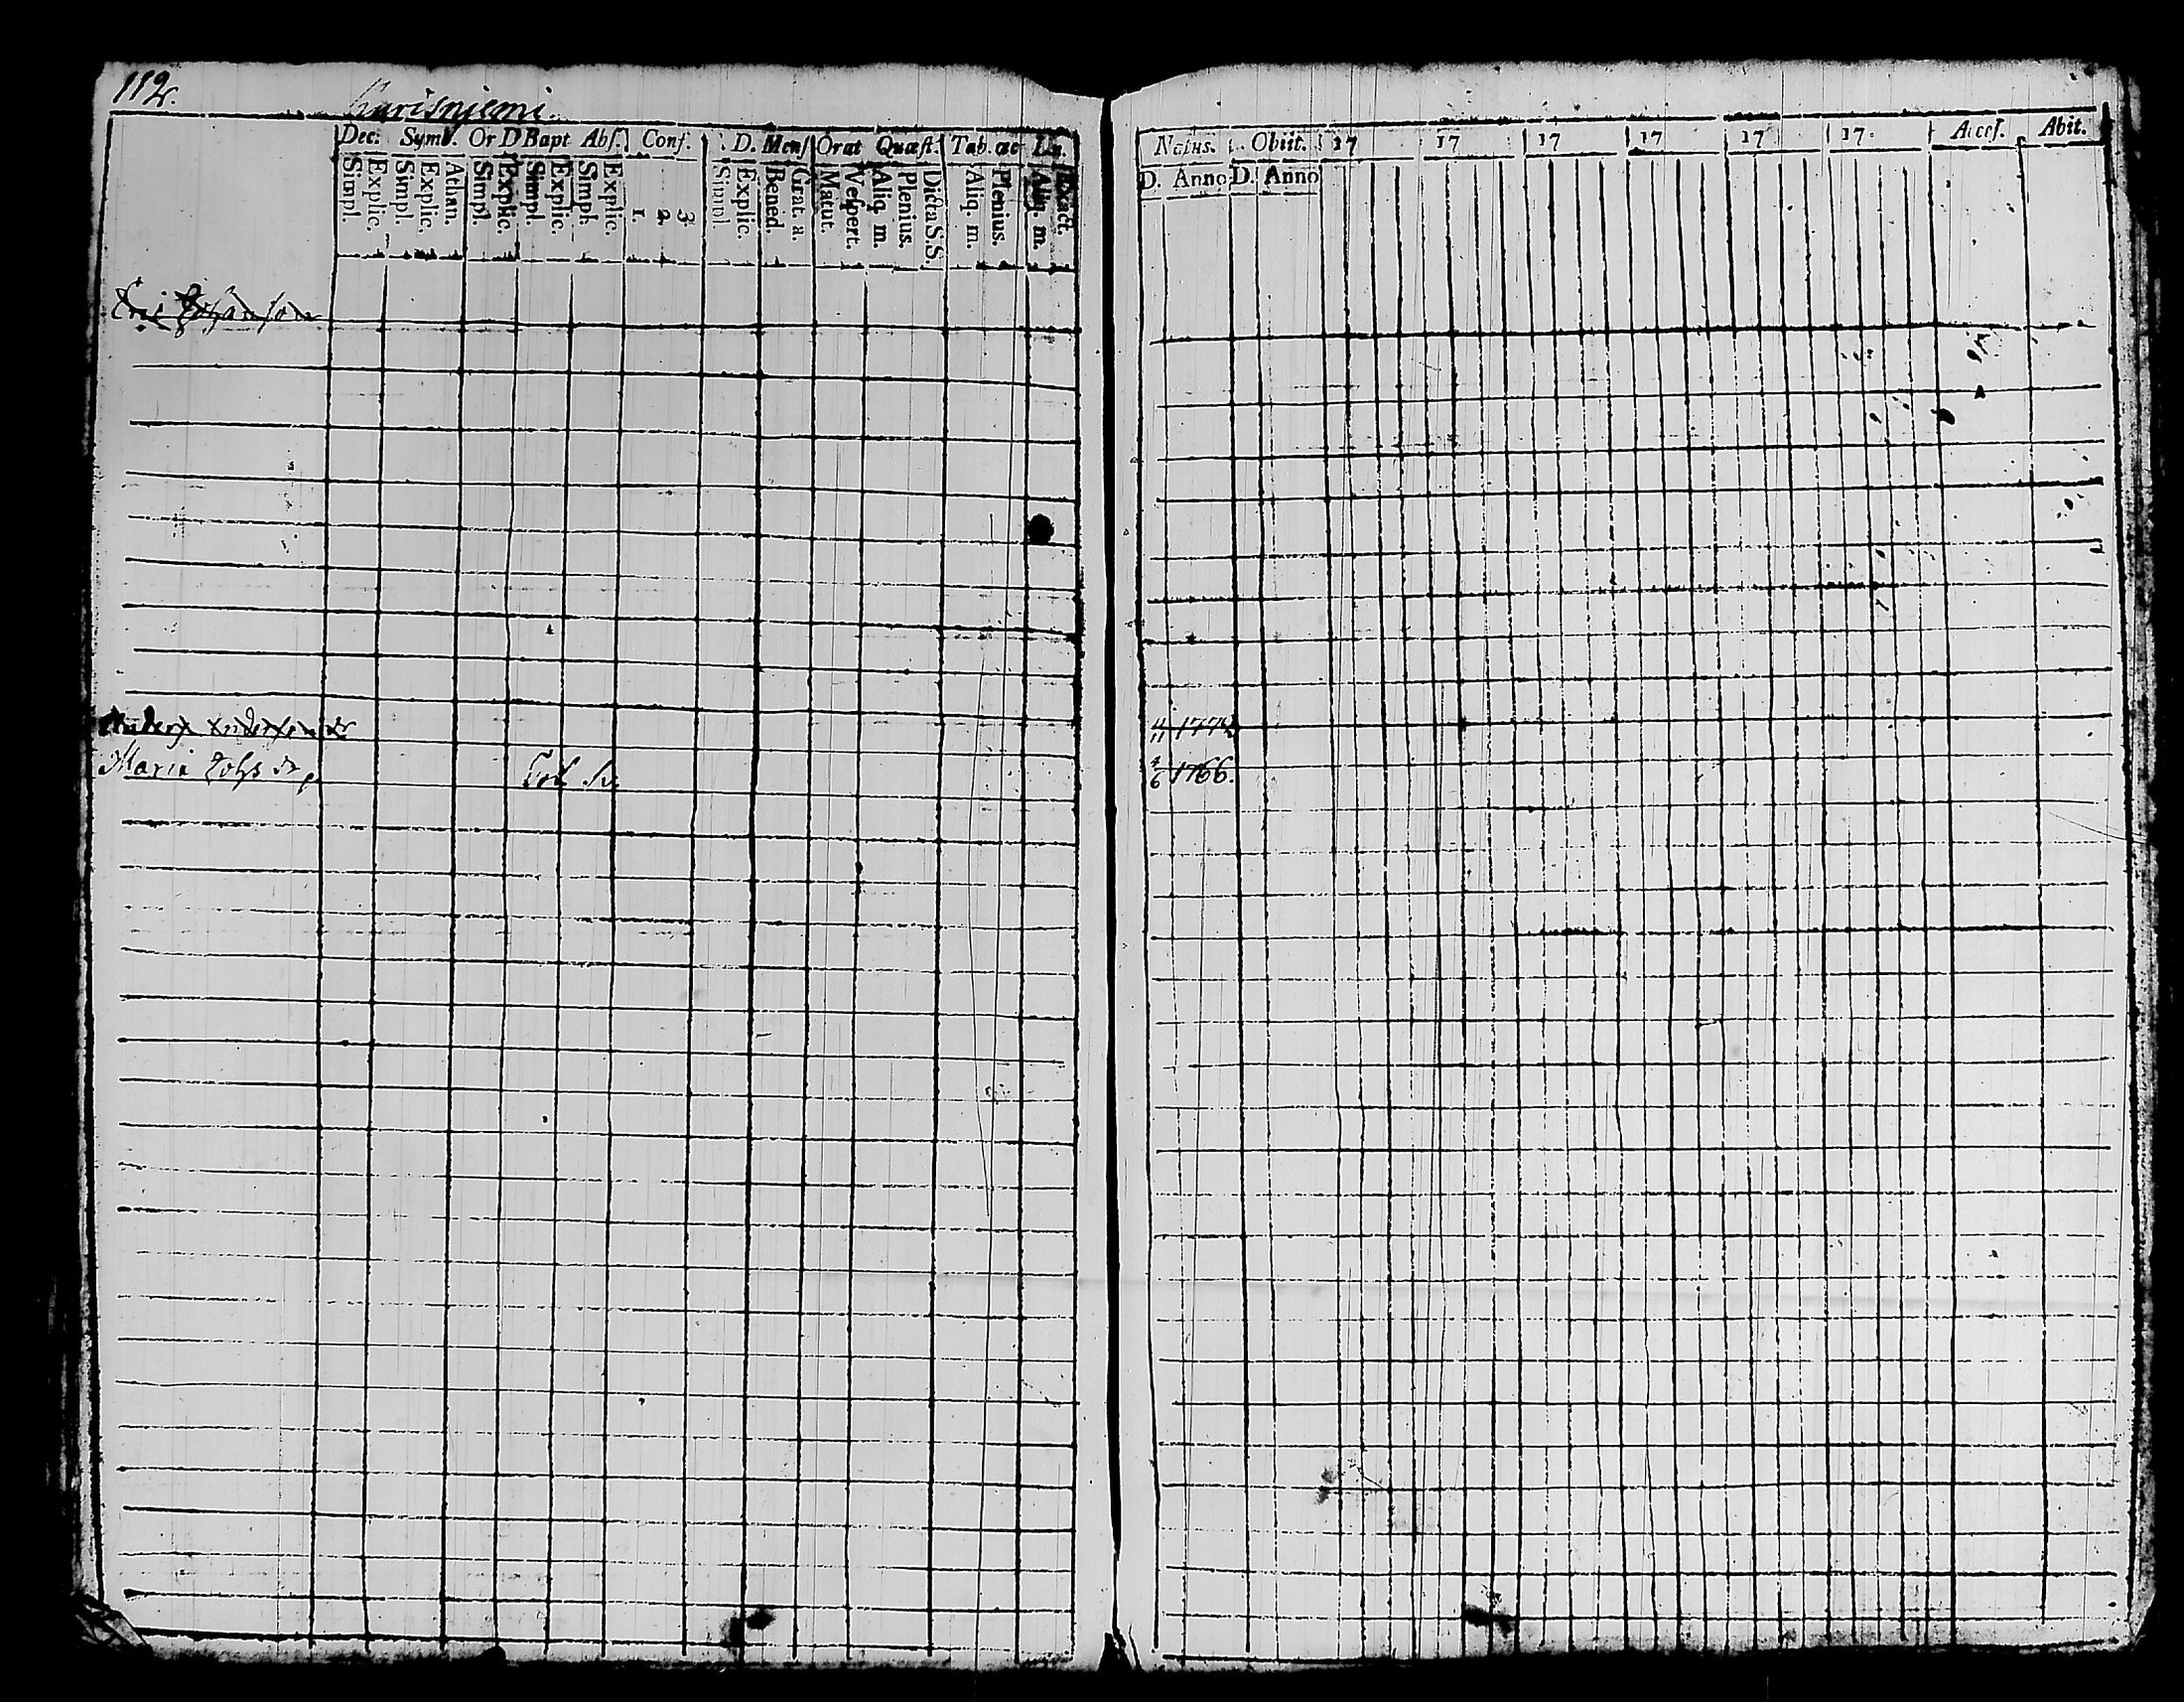 112.
Karisnjemi.
Dec. Symb. Or D Bapt Abs. Conf. D. Mens Orat Quæst. Tab. œc Lu.
Simpl. Explic. Simpl. Explic. Athan. Simpl. Explic. Simpl. Explic. Simpl. Explic. 1. 2. 3. Simpl. Explic. Bened. Grat. a. Matut. Vespert. Aliq. m. Plenius. Dicta S.S. Aliq. m. Plenius. Aliq. m. Exact.
Natus. Obiit. 17 17 17 17 17 17 Acces. Abit.
D. Anno D. Anno
Eric Johansson
Anders Andersson
Maria Johs dr
1766.